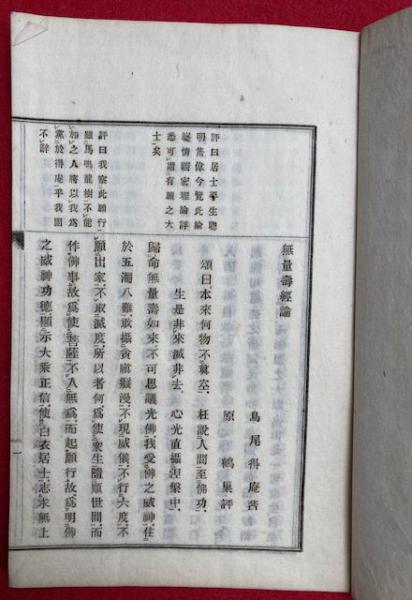 評曰居士平生聰
明蓋偉今覽此論
悲情縝密理論詳
悉可謂有願之大
士矣
評曰我察此願行
雖馬鳴龍樹不能
加之人將以我為
黨於得庵乎我固
不辭
無量壽經論
鳥尾得庵著
原鶴巢評
頌曰本來何物不真空 枉說人間至佛功
生是非來滅非去 心光直攝涅槃中
歸命無量壽如來不可思議光佛我受佛之威神住
於五濁八難敢攝貪瞋癡漫不現威儀不行六度不
願出家不取滅度所以者何為使衆生隨順世間而
作佛事故為使菩薩不入無為而起願行故為明佛
之威神功德顯示大乘正信使白衣居士志求無上